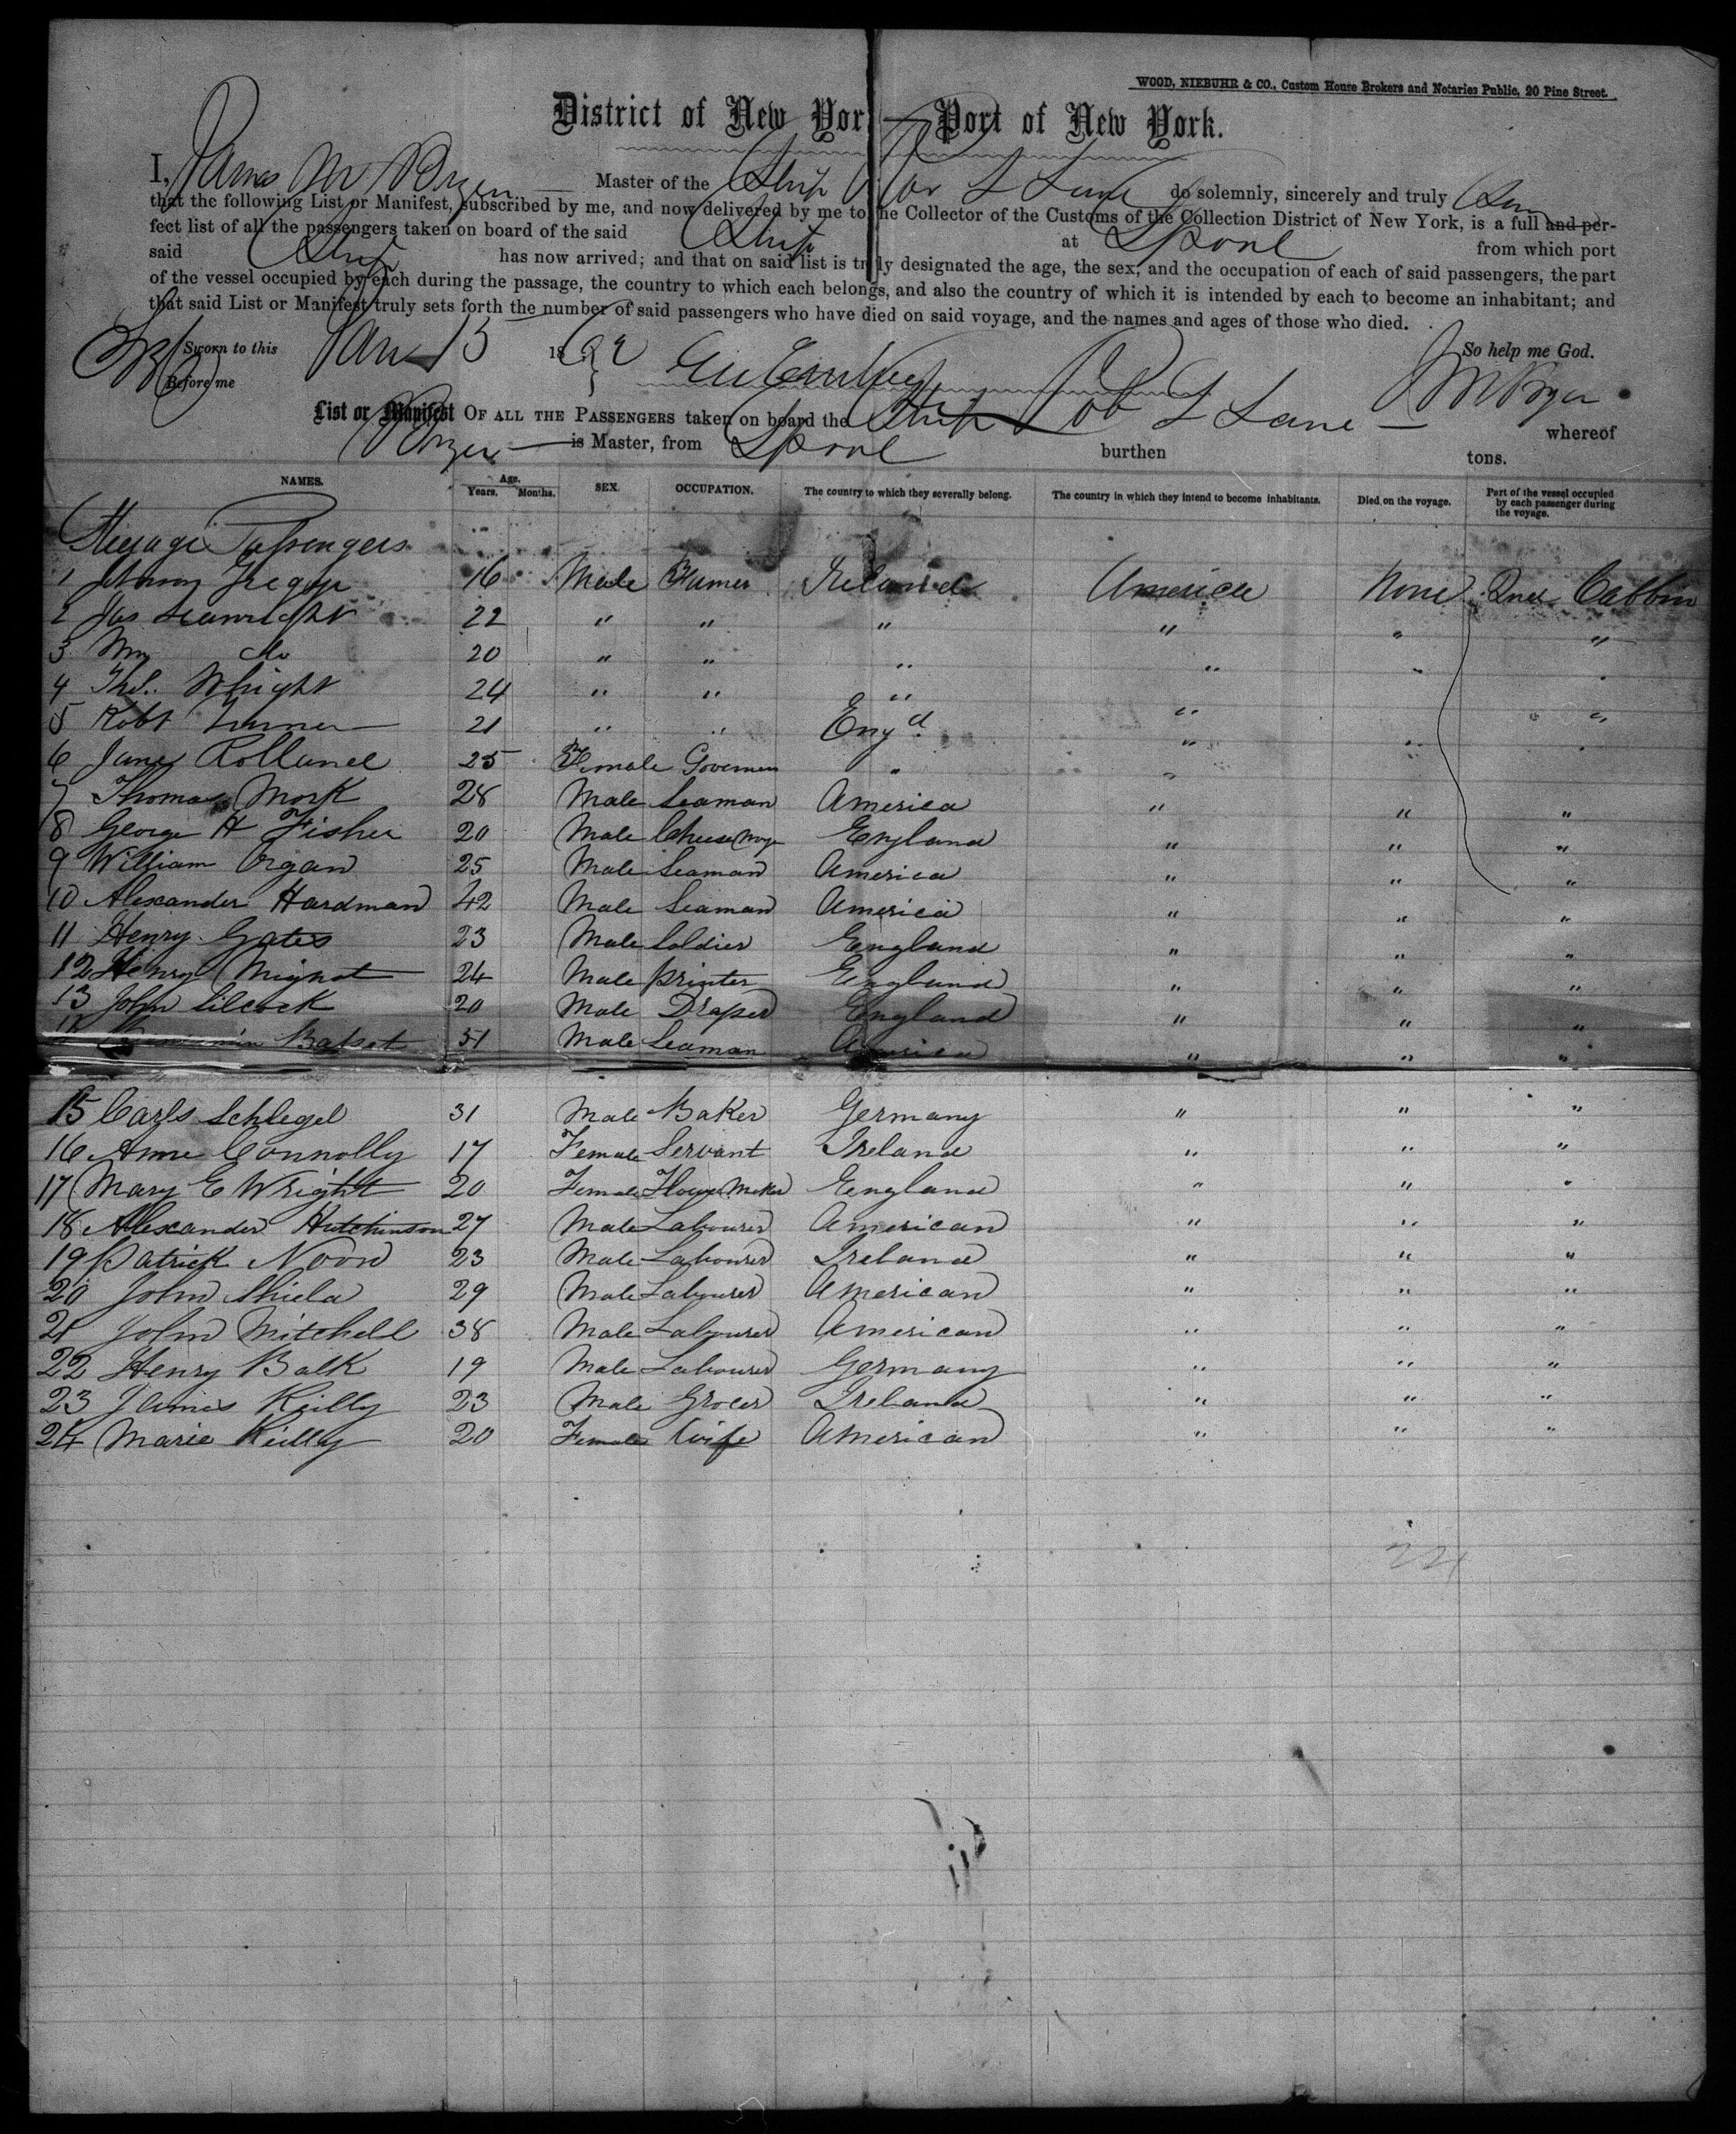 WOOD, NIEBUHR & CO., Custom House Brokers and Notaries Public, 20 Pine Street.
District of New Yor — Port of New York.
I, James M Bryer Master of the Ship Rob L Lane do solemnly, sincerely and truly
that the following List or Manifest, subscribed by me, and now delivered by me to the Collector of the Customs of the Collection District of New York, is a full and per-
fect list of all the passengers taken on board of the said Ship at Lpool from which port
said Ship has now arrived; and that on said list is truly designated the age, the sex, and the occupation of each of said passengers, the part
of the vessel occupied by each during the passage, the country to which each belongs, and also the country of which it is intended by each to become an inhabitant; and
that said List or Manifest truly sets forth the number of said passengers who have died on said voyage, and the names and ages of those who died.
Sworn to this Jan 15 1862 So help me God.
Before me
List or Manifest OF ALL THE PASSENGERS taken on board the Ship Rob L Lane — whereof
Bryer — is Master, from Lpool burthen tons.
NAMES. Age. Years. Months. SEX. OCCUPATION. The country to which they severally belong. The country in which they intend to become inhabitants. Died on the voyage. Part of the vessel occupied by each passenger during the voyage.
Steerage Passengers
1 16 Male Ireland America None 2nd Cabbin
2 Jas 22 " " " " " "
3 Wm do 20 " " " " "
4 Thos. Wright 24 " " " " "
5 Robt Turner 21 " " Engd. " "
6 Jane Rolland 25 Female " "
7 Thomas Mork 28 Male Seaman America " " "
8 George H Fisher 20 Male England " " "
9 William Organ 25 Male Seaman America " " "
10 Alexander Hardman 42 Male Seaman America " " "
11 Henry Gates 23 Male Soldier England " " "
12 Henry Mignot 24 Male printer England " " "
13 John Silcock 20 Male Draper England " " "
14 Batset 31 Male Seaman America " " "
15 Carls Schlegel 31 Male Baker Germany " " "
16 Anne Connolly 17 Female Servant Ireland " " "
17 Mary E Wright 20 Female England " " "
18 Alexander Hutchinson 27 Male Labourer American " " "
19 Patrick Noon 23 Male Labourer Ireland " " "
20 John Shiela 29 Male Labourer American " " "
21 John Mitchell 38 Male Labourer American " " "
22 Henry Balk 19 Male Labourer Germany " " "
23 James Reilly 23 Male Grocer Ireland " " "
24 Marie Reilly 20 Female Wife American " " "
24